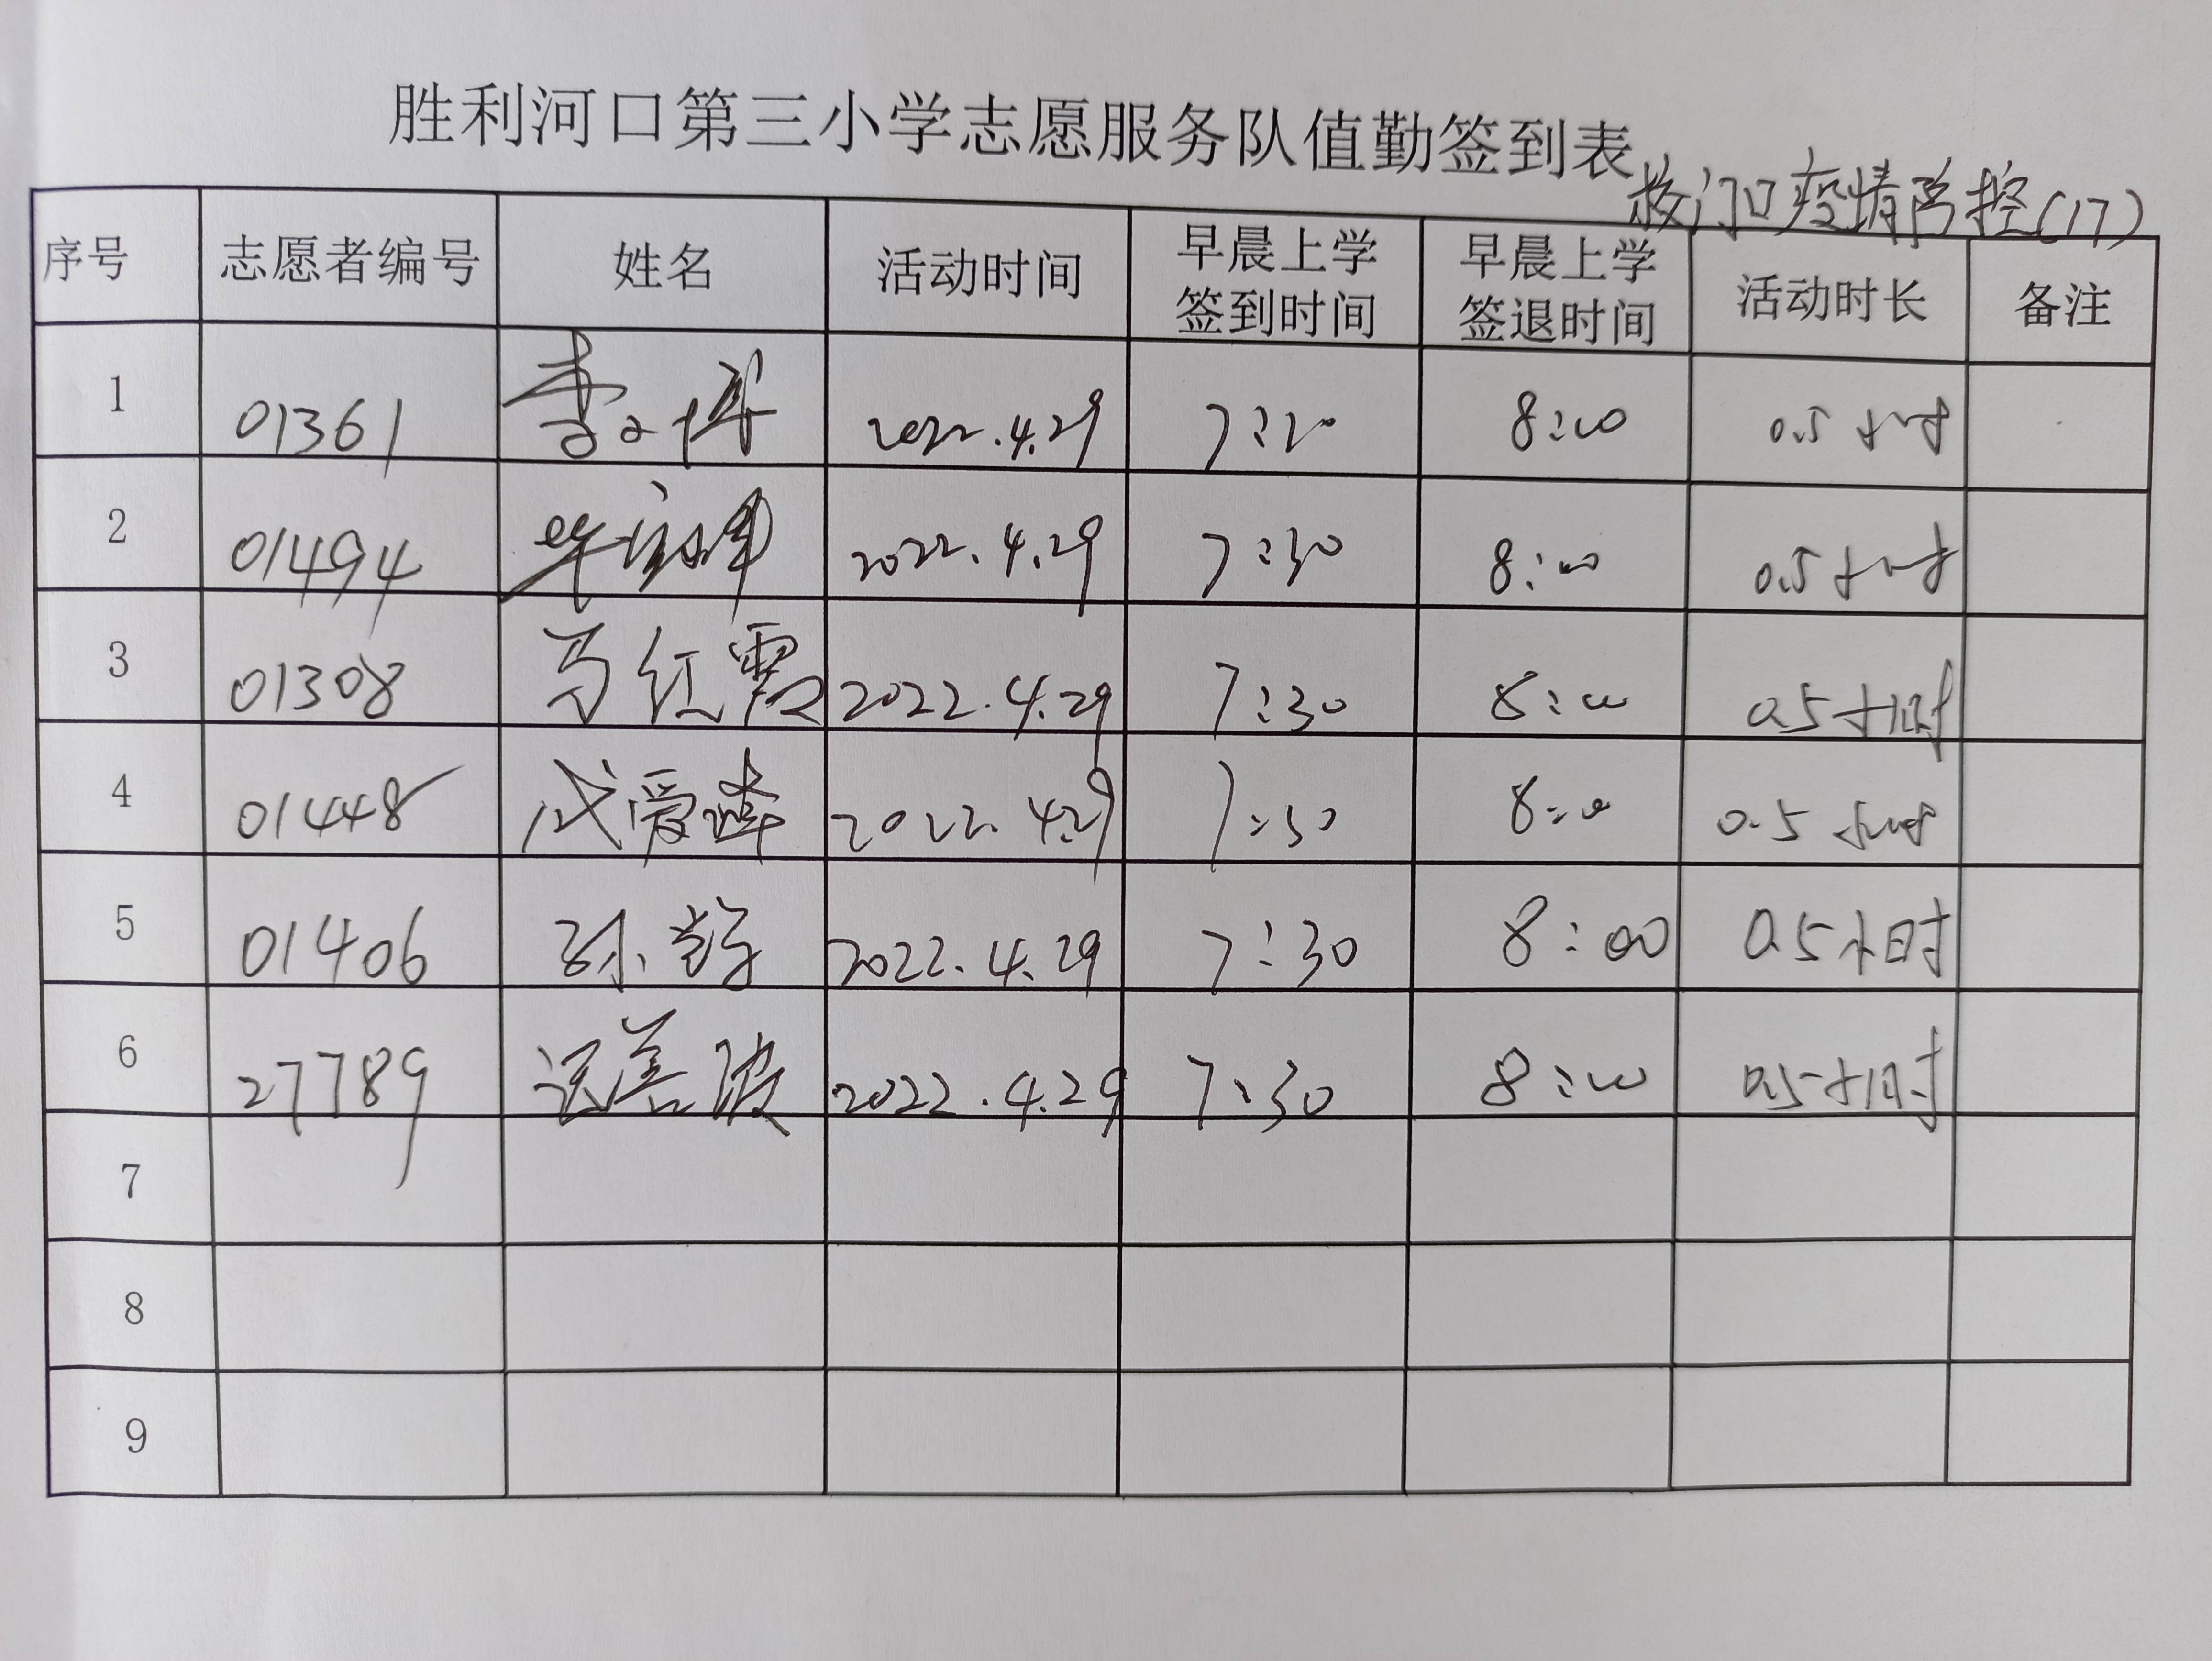 胜利河口第三小学志愿服务队值勤签到表
校门口疫情防控(17)
序号 志愿者编号 姓名 活动时间 早晨上学签到时间 早晨上学签退时间 活动时长 备注
1 01361 2022.4.29 8:00 0.5小时
2 01494 2022.4.29 7:30 8:00 0.5小时
3 01308 马红霞 2022.4.29 7:30 8:00 0.5小时
4 01448 成爱 2022.4.29 7:30 8:00 0.5小时
5 01406 孙 2022.4.29 7:30 8:00 0.5小时
6 27789 善波 2022.4.29 7:30 8:00 0.5小时
7
8
9